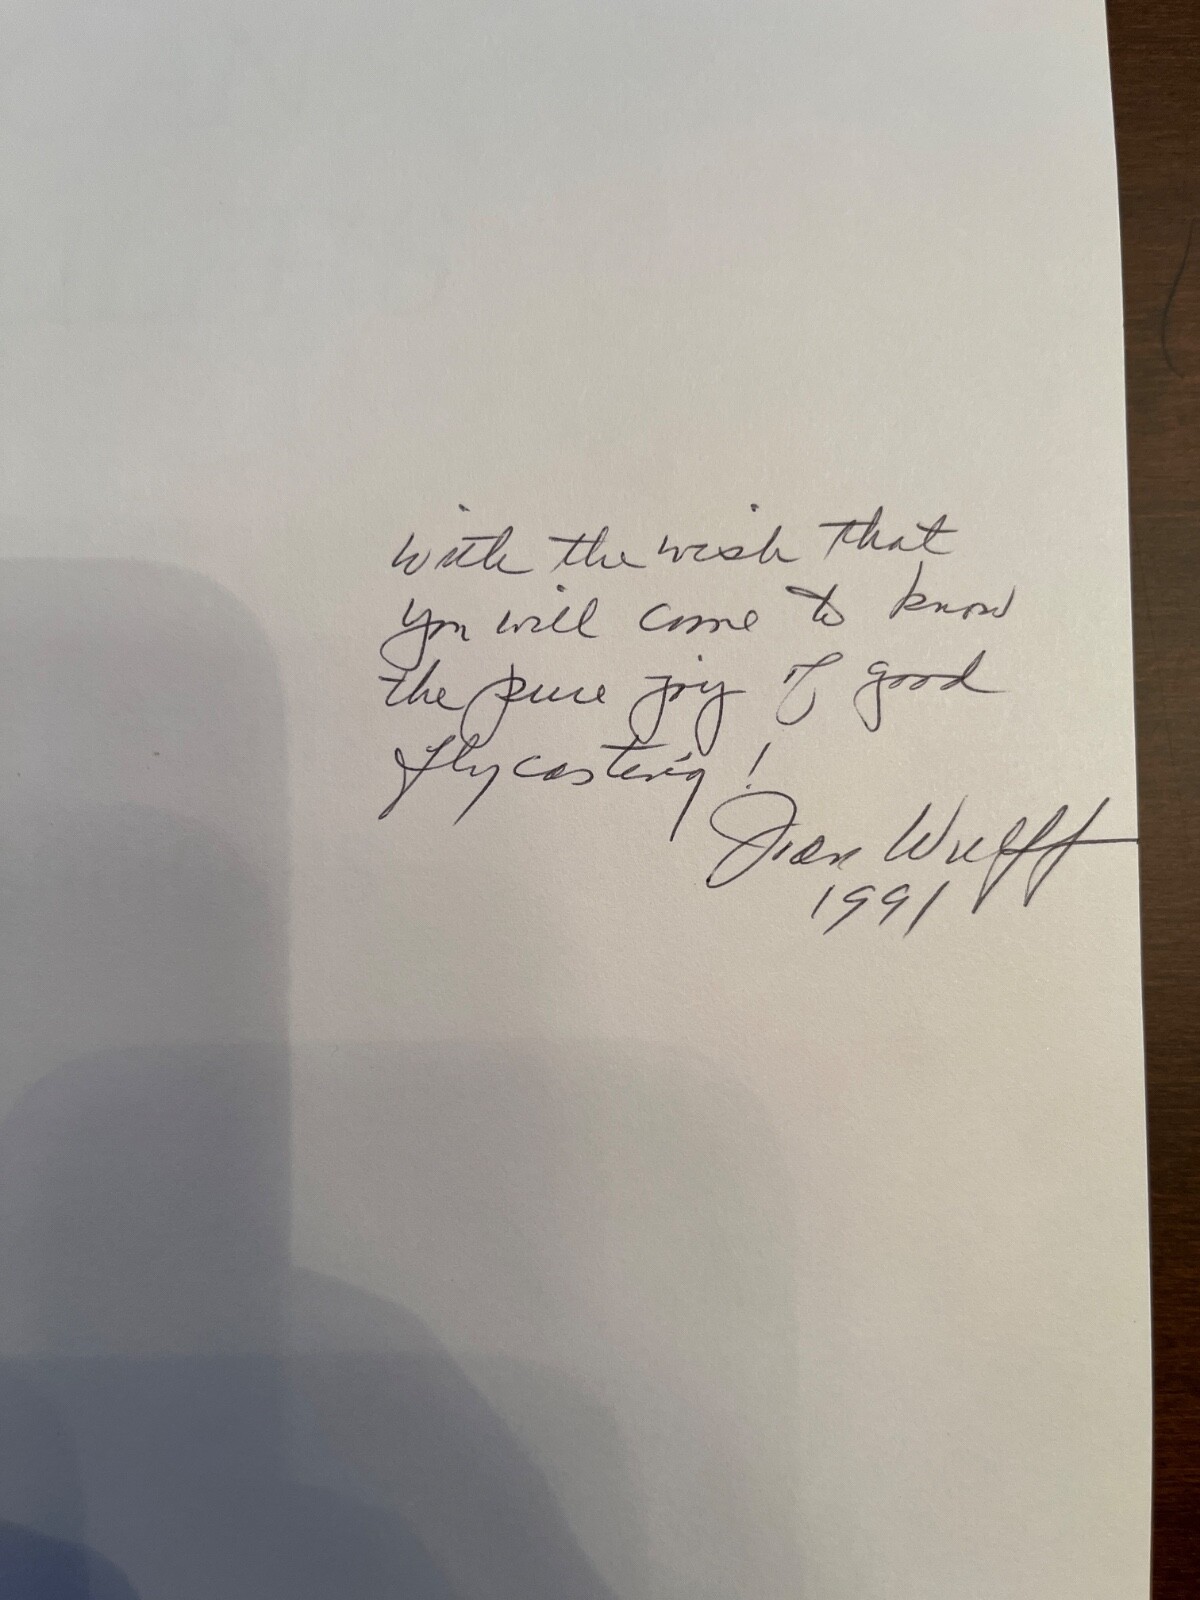 With the wish that
you will come to know
the pure joy of good
flycasting!
Joan Wulff
1991